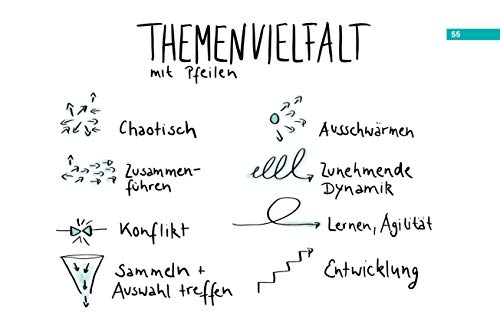 THEMENVIELFALT
mit Pfeilen
55
Chaotisch
Ausschwärmen
Zusammen-
führen
Zunehmende
Dynamik
Konflikt
Lernen, Agilität
Sammeln +
Auswahl treffen
Entwicklung